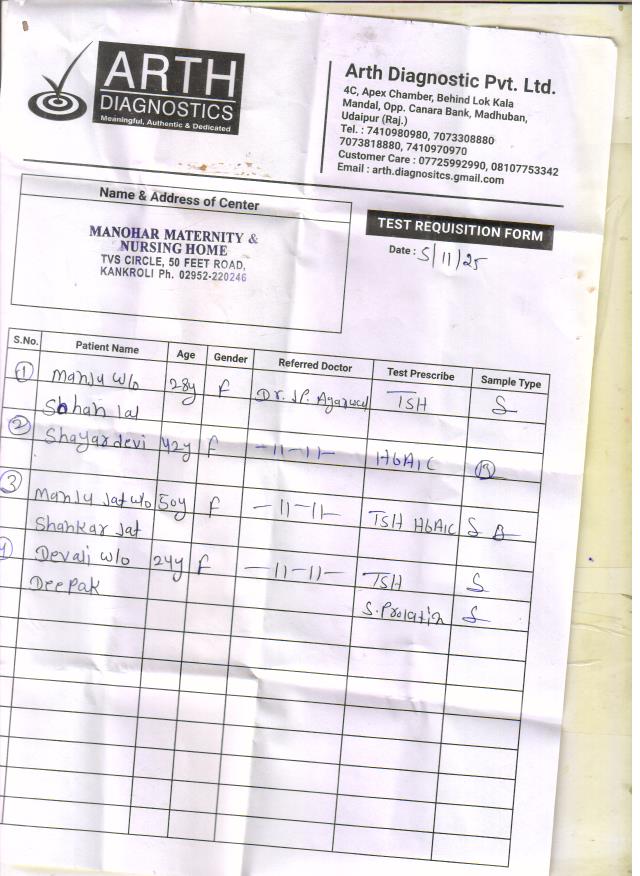 ARTH
DIAGNOSTICS
Meaningful, Authentic & Dedicated
Arth Diagnostic Pvt. Ltd.
4C, Apex Chamber, Behind Lok Kala
Mandal, Opp. Canara Bank, Madhuban,
Udaipur (Raj.)
Tel. : 7410980980, 7073308880
7073818880, 7410970970
Customer Care : 07725992990, 08107753342
Email : arth.diagnositcs.gmail.com
Name & Address of Center
MANOHAR MATERNITY &
NURSING HOME
TVS CIRCLE, 50 FEET ROAD,
KANKROLI Ph. 02952-220246
TEST REQUISITION FORM
Date : 5/11/25
S.No. Patient Name Age Gender Referred Doctor Test Prescribe Sample Type
1 Manju w/o 28y F Dr. J.P. Agarwal TSH S
Sohan lal
2 Shayardevi 42y F -11-11- HbA1C B
3 Manju Jat w/o 50y F -11-11- TSH HbA1C S B
Shankar Jat
4 Devali w/o 24y F -11-11- TSH S
Deepak
S. Prolatin S